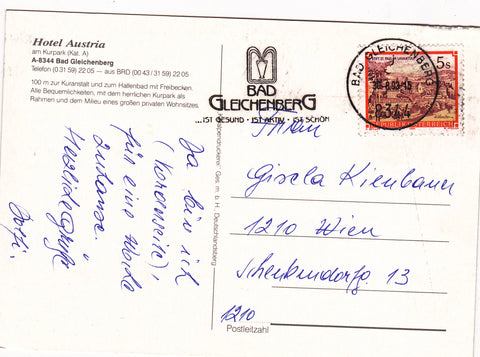 Hotel Austria
am Kurpark (Kat. A)
A-8344 Bad Gleichenberg
Telefon (0 31 59) 22 05 — aus BRD (00 43 / 31 59) 22 05
100 m zur Kuranstalt und zum Hallenbad mit Freibecken.
Alle Bequemlichkeiten, mit dem herrlichen Kurpark als
Rahmen und dem Milieu eines großen privaten Wohnsitzes.
Ja bin ich
für eine Woche
zuhause.
Herzliche Grüße
Ges. m. b. H. Deutschlandsberg
BAD
GLEICHENBERG
...IST GESUND · IST AKTIV · IST SCHÖN
BAD GLEICHENBERG
8344
5s
REPUBLIK ÖSTERREICH
Gisela Kienbauer
1210 Wien
13
1210
Postleitzahl